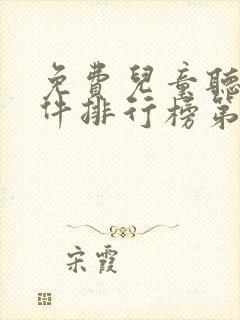 免費兒童聽
件排行榜第
宋霞